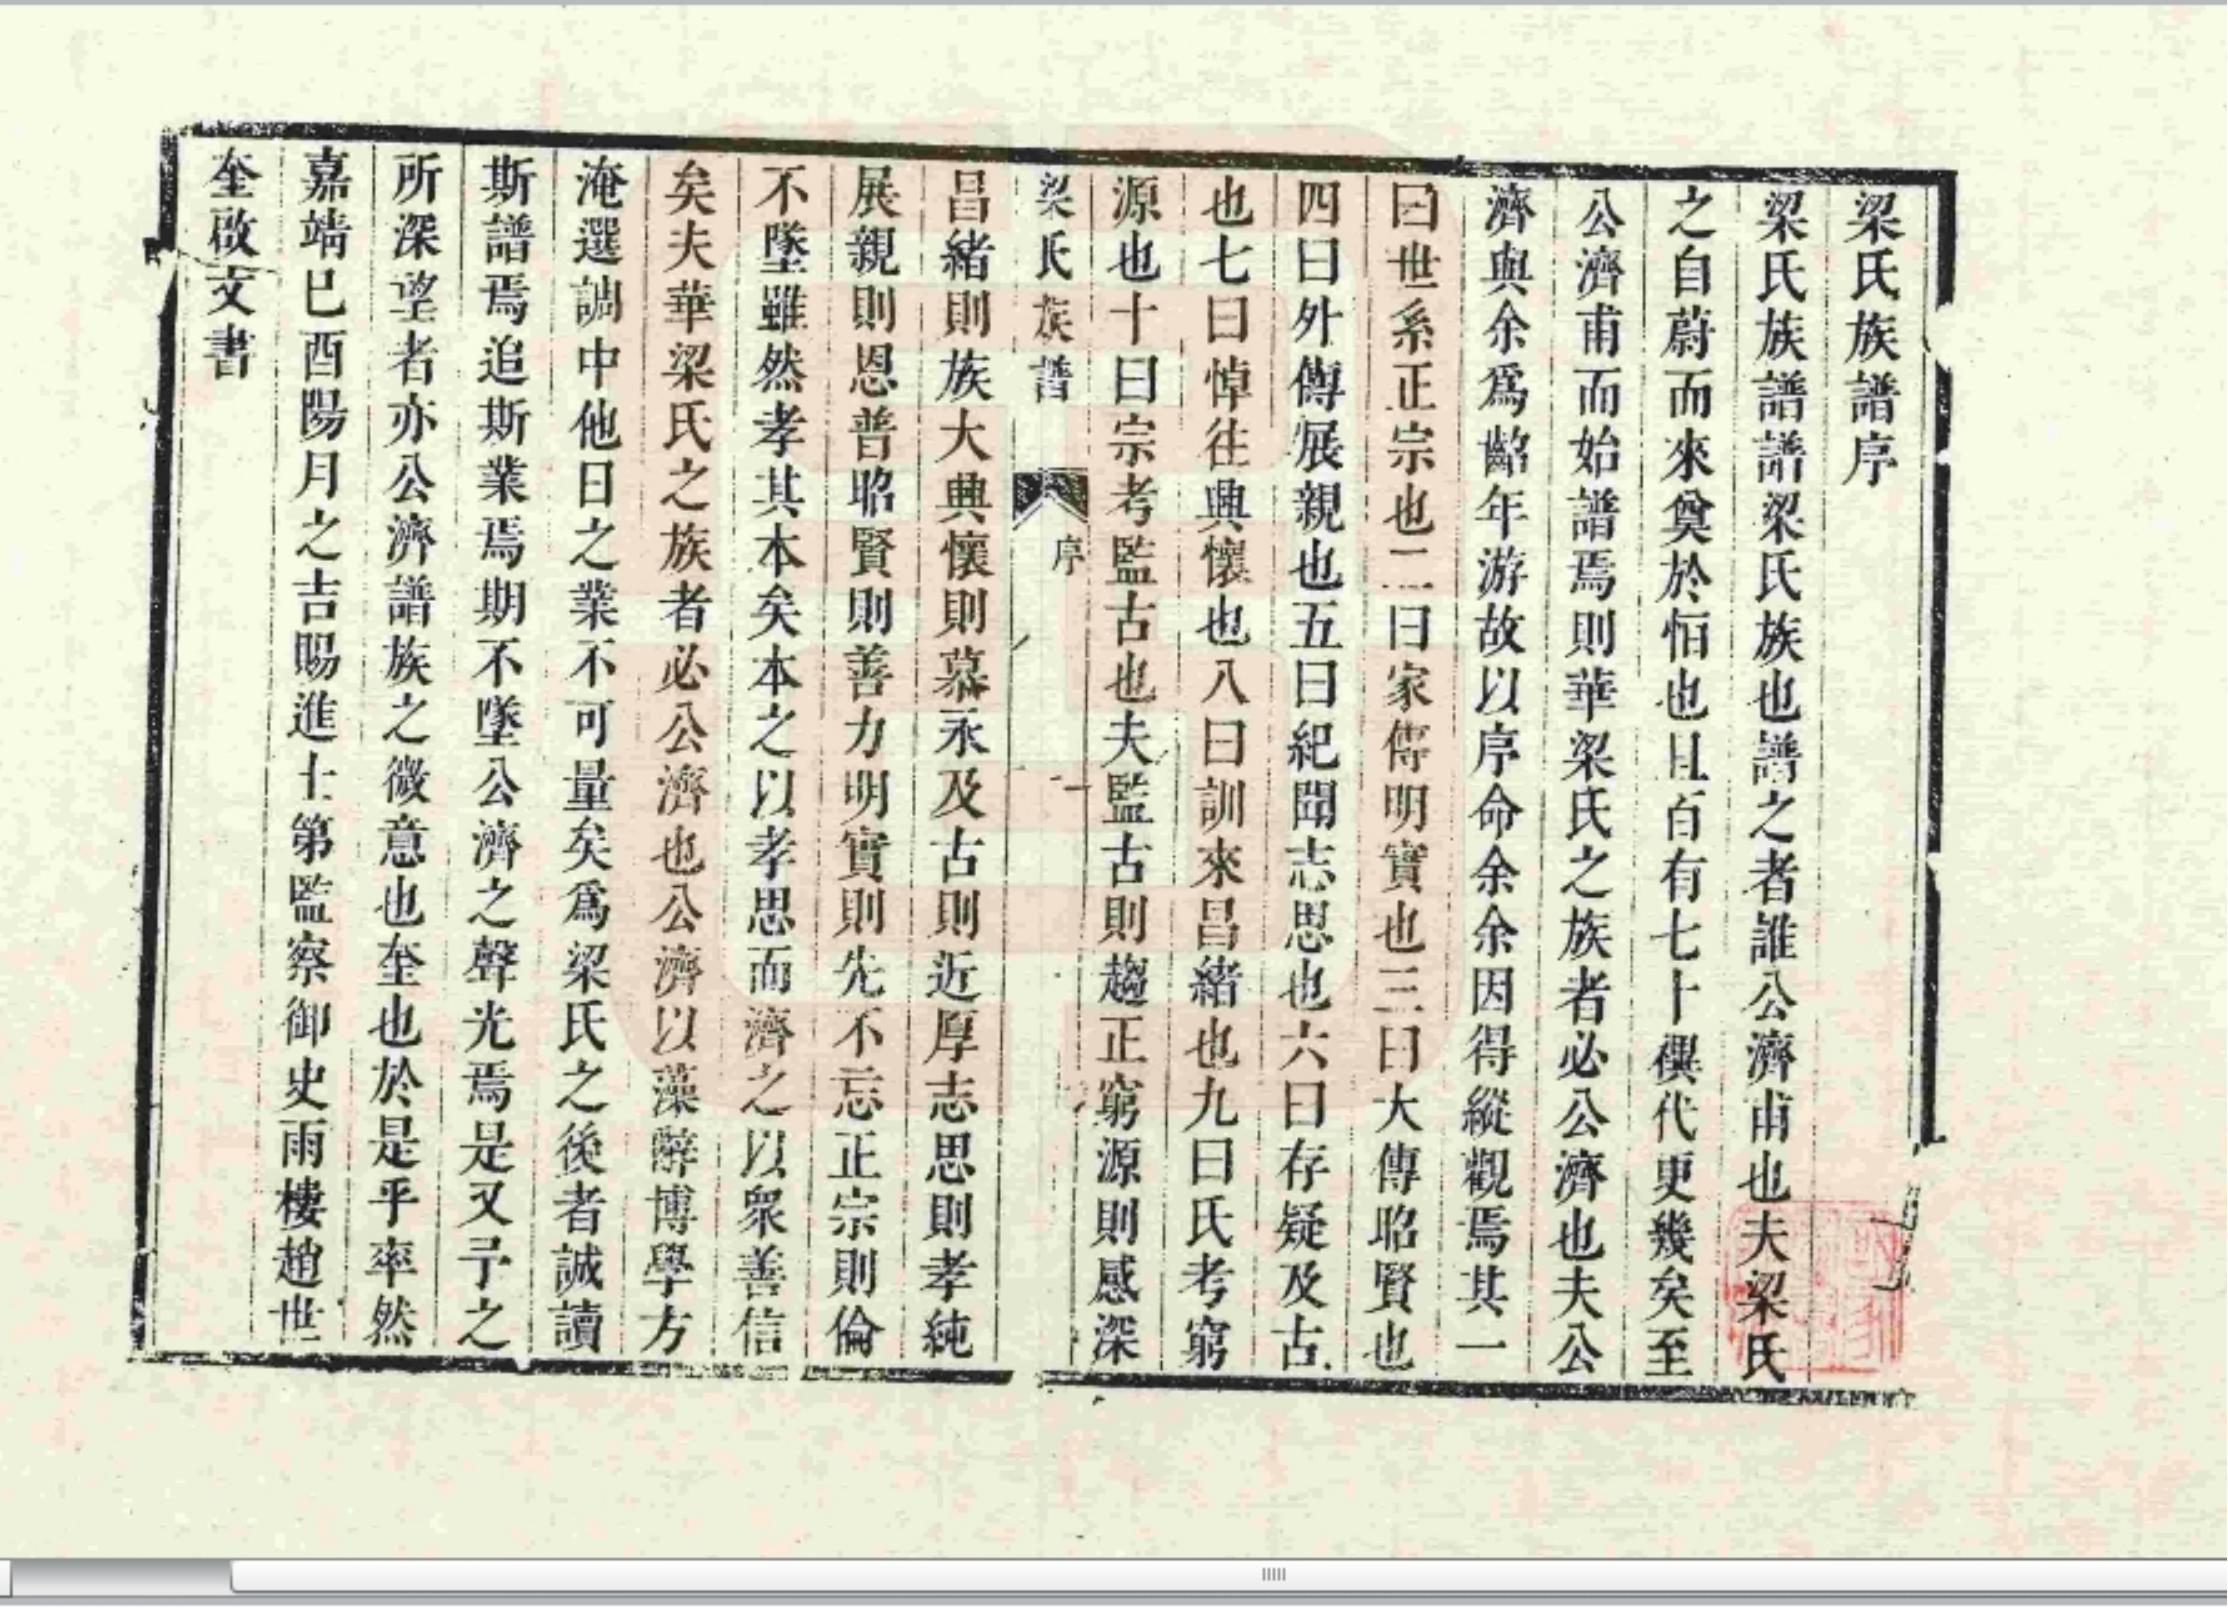 梁氏族譜序
梁氏族譜譜梁氏族也譜之者誰公濟甫也夫梁氏
之自蔚而來奠於恒也且百有七十禩代更幾矣至
公濟甫而始譜焉則華梁氏之族者必公濟也夫公
濟與余爲齠年游故以序命余余因得縱觀焉其一
曰世系正宗也二曰家傳明實也三曰大傳昭賢也
四曰外傳展親也五曰紀聞志思也六曰存疑及古
也七曰悼往興懷也八曰訓來昌緒也九曰氏考窮
源也十曰宗考監古也夫監古則趨正窮源則感深
梁氏族譜
序
一
昌緒則族大興懷則慕永及古則近厚志思則孝純
展親則恩普昭賢則善力明實則先不忘正宗則倫
不墜雖然孝其本矣本之以孝思而濟之以衆善信
矣夫華梁氏之族者必公濟也公濟以藻辭博學方
淹選調中他日之業不可量矣爲梁氏之後者誠讀
斯譜焉追斯業焉期不墜公濟之聲光焉是又予之
所深望者亦公濟譜族之微意也奎也於是乎率然
嘉靖巳酉陽月之吉賜進士第監察御史雨樓趙世
奎啟文書